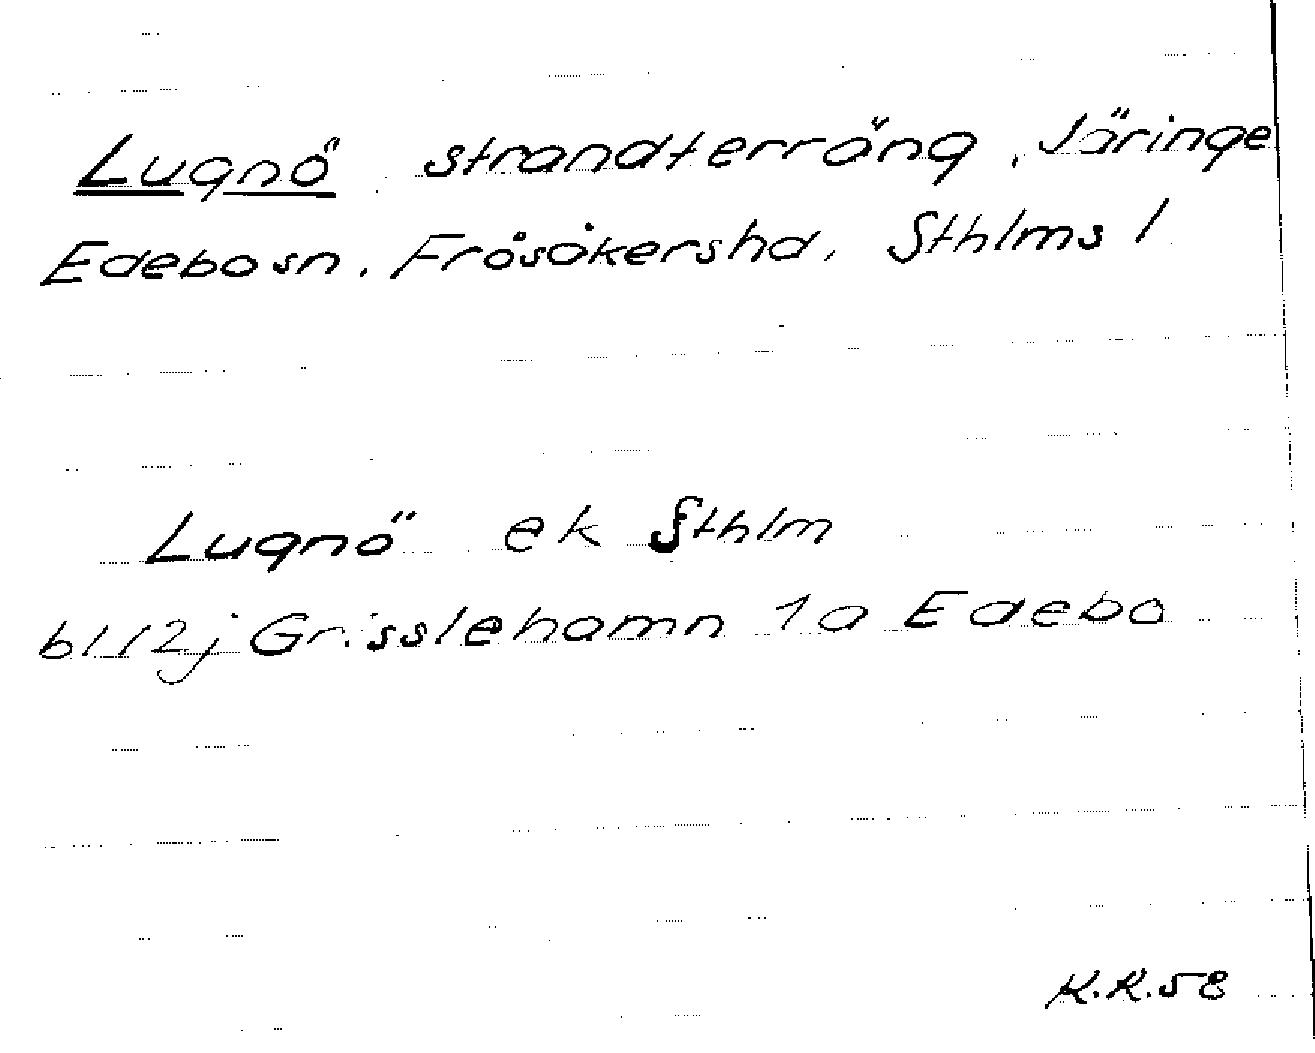 Lugnö, strandterräng, Järinge
Edebo sn, Frösåkers hd, Sthlms l
Lugnö ek Sthlm
bl 12j Grisslehamn 1a Edebo
K.R.58